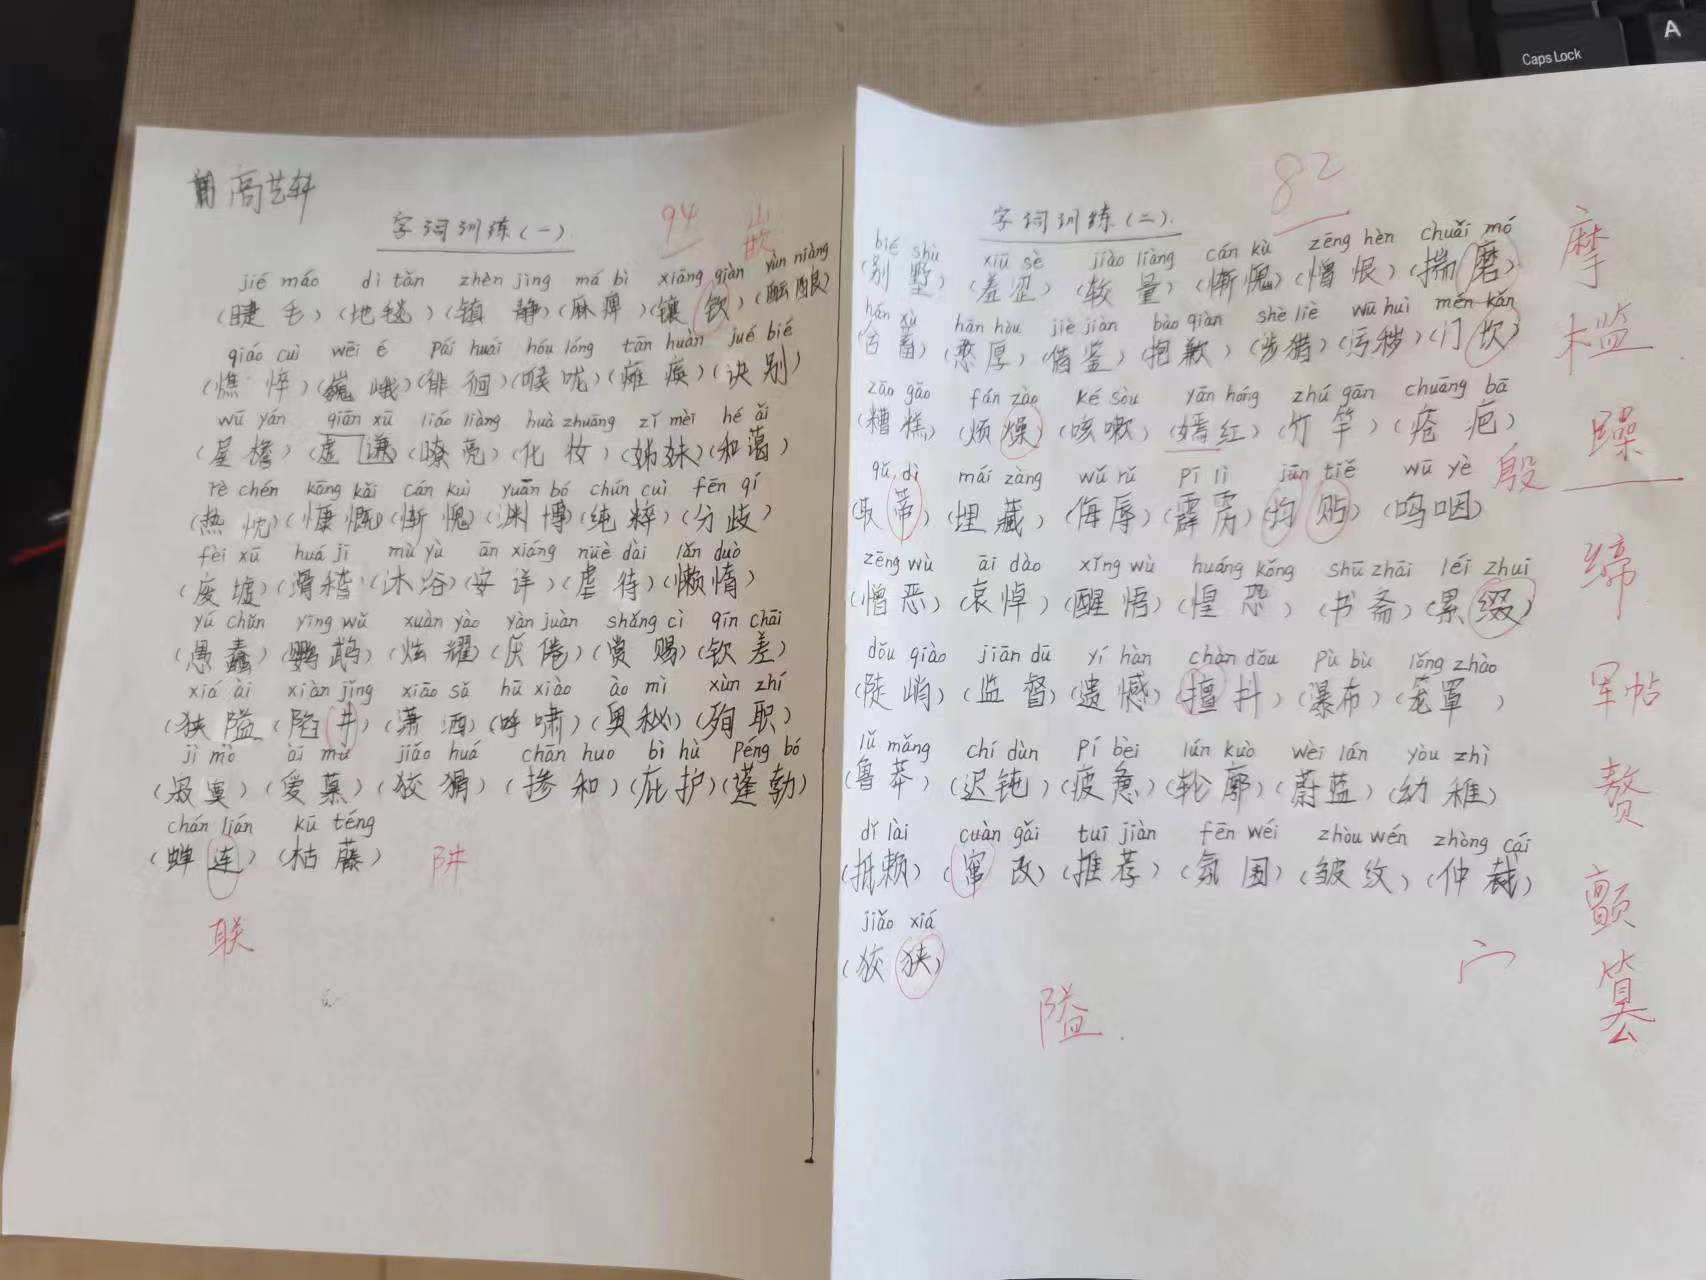 高艺轩
字词训练(一)
94
嵌
jié máo dì tǎn zhèn jìng má bì xiāng qiàn yùn niàng
(睫毛)(地毯)(镇静)(麻痹)(镶钦)(酝酿)
qiáo cuì wēi é pái huái hóu lóng tān huàn jué bié
(憔悴)(巍峨)(徘徊)(喉咙)(瘫痪)(诀别)
wū yán qiān xū liáo liàng huà zhuāng zǐ mèi hé ǎi
(屋檐)(虚谦)(嘹亮)(化妆)(姊妹)(和蔼)
rè chén kāng kǎi cán kuì yuān bó chún cuì fēn qí
(热忱)(慷慨)(惭愧)(渊博)(纯粹)(分歧)
fèi xū huá jī mù yù ān xiáng nüè dài lǎn duò
(废墟)(滑稽)(沐浴)(安详)(虐待)(懒惰)
yú chǔn yīng wǔ xuàn yào yàn juàn shǎng cì qīn chāi
(愚蠢)(鹦鹉)(炫耀)(厌倦)(赏赐)(钦差)
xiá ài xiàn jǐng xiāo sǎ hū xiào ào mì xùn zhí
(狭隘)(陷井)(潇洒)(呼啸)(奥秘)(殉职)
jì mò ài mù jiǎo huá chān huo bì hù péng bó
(寂寞)(爱慕)(狡猾)(掺和)(庇护)(蓬勃)
chán lián kū téng
(蝉连)(枯藤)
阱
联
字词训练(二)
82
bié shù xiū sè jiào liàng cán kù zēng hèn chuǎi mó
(别墅)(羞涩)(较量)(惭愧)(憎恨)(揣磨)
摩
hán xù hān hòu jiè jiàn bào qiàn shè liè wū huì mén kǎn
(含蓄)(憨厚)(借鉴)(抱歉)(涉猎)(污秽)(门坎)
槛
zāo gāo fán zào ké sòu yān hóng zhú gān chuāng bā
(糟糕)(烦燥)(咳嗽)(嫣红)(竹竿)(疮疤)
躁
qǔ dì mái zàng wǔ rǔ pī lì jūn tiě wū yè
(取蒂)(埋藏)(侮辱)(霹雳)(均贴)(呜咽)
殷
缔
zēng wù āi dào xǐng wù huáng kǒng shū zhāi léi zhuì
(憎恶)(哀悼)(醒悟)(惶恐)(书斋)(累缀)
dǒu qiào jiān dū yí hàn chàn dǒu pù bù lǒng zhào
(陡峭)(监督)(遗憾)(擅抖)(瀑布)(笼罩)
军帖
lǔ mǎng chí dùn pí bèi lún kuò wèi lán yòu zhì
(鲁莽)(迟钝)(疲惫)(轮廓)(蔚蓝)(幼稚)
赘
dǐ lài cuàn gǎi tuī jiàn fēn wéi zhòu wén zhòng cái
(抵赖)(窜改)(推荐)(氛围)(皱纹)(仲裁)
颤
jiǎo xiá
(狡狭)
篡
隘
宀